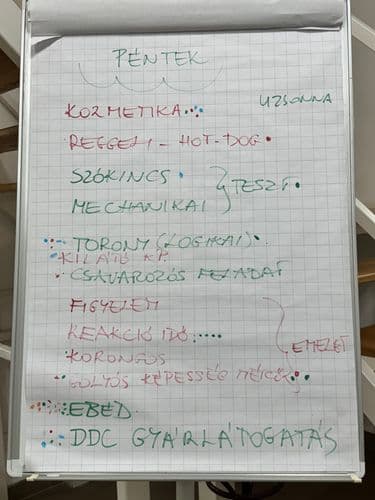 PÉNTEK
UZSONNA
KOZMETIKA
REGGELI - HOT-DOG
SZÓKINCS
TESZT
MECHANIKAI
TORONY (LOGIKAI)
KILÁTÓ KP.
CSAVAROZÓS FELADAT
FIGYELEM
REAKCIÓ IDŐ
EMELET
KORONGOS
GOLYÓS KÉPESSÉG MÉRŐ
EBÉD
DDC GYÁRLÁTOGATÁS